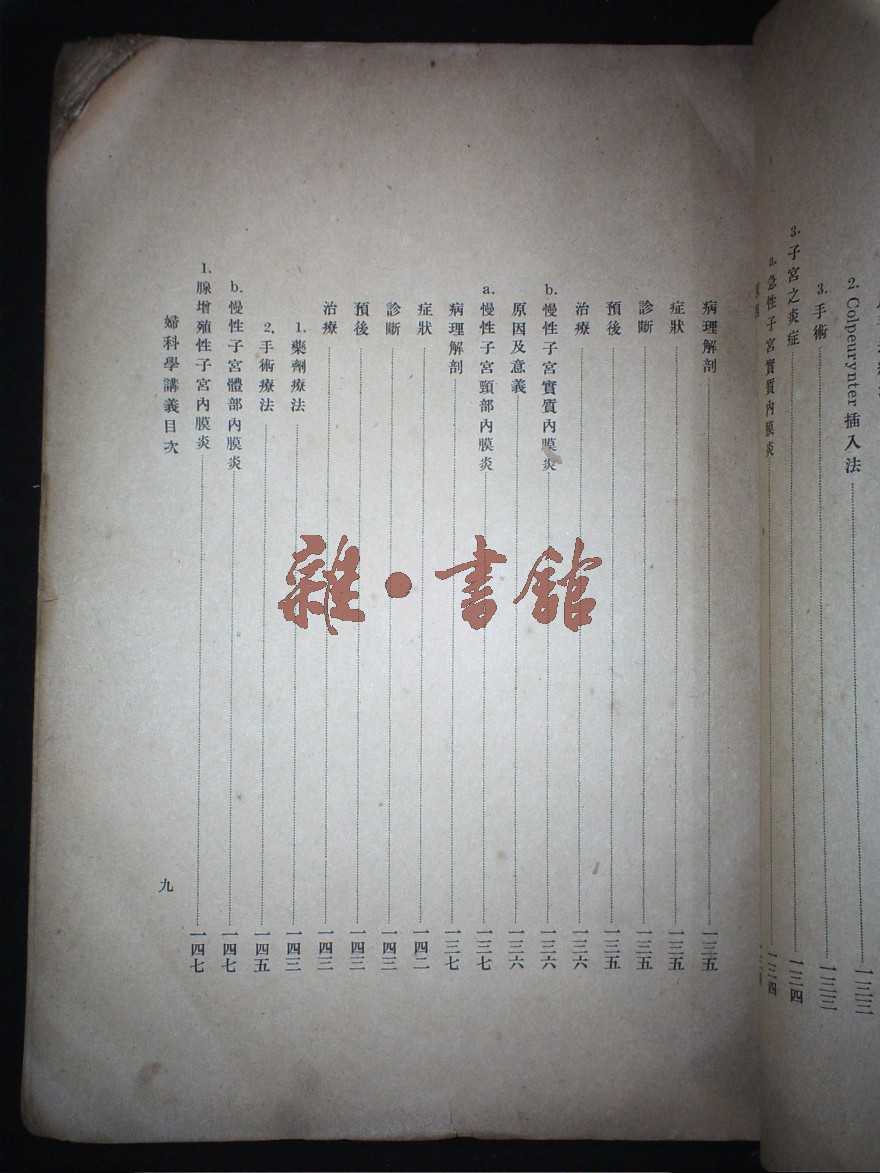 2. Colpeurynter 插入法 一三三
3. 手術 一三三
3. 子宮之炎症 一三四
a. 急性子宮實質內膜炎 一三四
病理解剖 一三五
症狀 一三五
診斷 一三五
預後 一三五
治療 一三六
b. 慢性子宮實質內膜炎 一三六
原因及意義 一三六
a. 慢性子宮頸部內膜炎 一三七
病理解剖 一三七
症狀 一四二
診斷 一四三
預後 一四三
治療 一四三
1. 藥劑療法 一四三
2. 手術療法 一四五
b. 慢性子宮體部內膜炎 一四七
1. 腺增殖性子宮內膜炎 一四七
婦科學講義目次 九
雜·書館